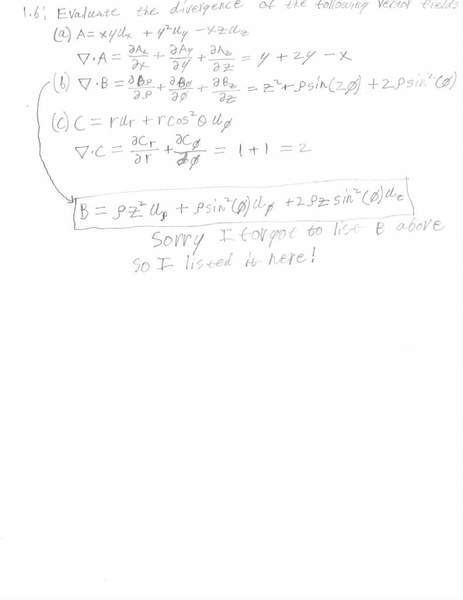 1.6: Evaluate the divergence of the following vector fields
(a) A = xy u_x + y² u_y - xz u_z
∇·A = ∂A_x/∂x + ∂A_y/∂y + ∂A_z/∂z = y + 2y - x
(b) ∇·B = ∂B_ρ/∂ρ + ∂B_ø/∂ø + ∂B_z/∂z = z² + ρsin(2ø) + 2ρsin²(ø)
(c) C = r u_r + r cos²θ u_ø
∇·C = ∂C_r/∂r + ∂C_ø/∂ø = 1 + 1 = 2
B = ρz² u_ρ + ρsin²(ø) u_ø + 2ρz sin²(ø) u_z
Sorry I forgot to list B above
so I listed it here!